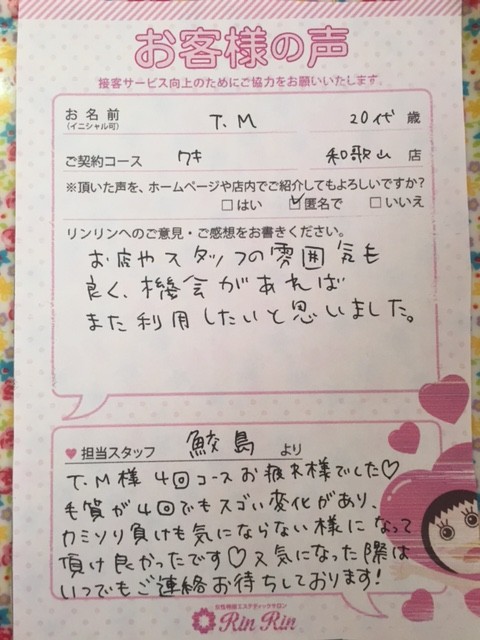 お客様の声
接客サービス向上のためにご協力をお願いいたします。
お名前 T.M 20代 歳
(イニシャル可)
ご契約コース ワキ 和歌山 店
※頂いた声を、ホームページや店内でご紹介してもよろしいですか?
□はい ☑匿名で □いいえ
リンリンへのご意見・ご感想をお書きください。
お店やスタッフの雰囲気も
良く、機会があれば
また利用したいと思いました。
担当スタッフ 鮫島 より
T.M様 4回コースお疲れ様でした♡
毛質が4回でもスゴい変化があり、
カミソリ負けも気にならない様になって
頂け良かったです♡又気になった際は
いつでもご連絡お待ちしております!
女性専用エステティックサロン
Rin Rin